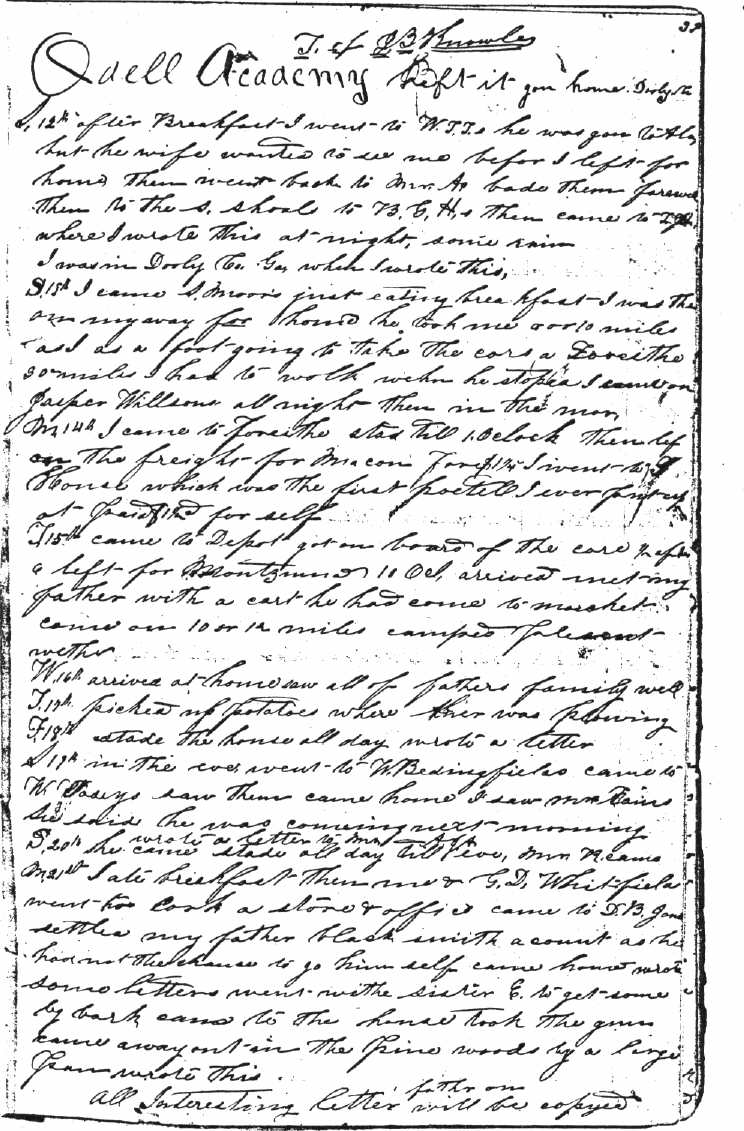 33
J. of J B Knowles
Odell Academy Left it gon home. Dooly
S, 12th after Breakfast I went to W.T.T.s he was gon to Ala
but he wife wanted to see me befor I left for
home then went back to Mr. As bade them farewe
then to the S. Shoals to B. C. H,s then came to
where I wrote this at night, some rain
I was in Dooly Co. Ga, when I wrote this,
S. 15th I came S. Moors just eating breakfast I was the
on my way for home he, took me 8 or 10 miles
as I as a foot going to take the cars a Forsithe
30 miles I had to wolk wehn he stoped I came on
Jasper Willsons all night then in the mor,
M, 14th I came to Forsithe stad till 1. Oclock then lef
on the freight for Macon I went to
House which was the first I ever
at Paid for self
T 15th came to Depot got on board of the care
& left for Montzuma 11 Ocl, arrived met my
father with a cart he had come to market
came on 10 or 12 miles camped Plesent
wethr
W 16th arrived at home saw all of fathers family well
T. 17th picked up potatoes where ther was plowing
F. 18th stade the house all day wrote a letter
S 19th in the eve, went to W. Bedingfields came to
W saw them came home I saw Mr
he said he was comeing next morning
wrote a letter to Mr
S, 20th he came stade all day till eve, Mr. Reams
M, 21st I ate breakfast then me & G. D, Whitfield
went to a store & office came to D. B, Jone
settled my father black smith acount as he
had not the chance to go him self came home wrote
some letters went withe sister E. to get some
by bark came to the house took the gun
came away out in the pine woods by a large
wrote this.
father on
All Interesting letter will be copyed